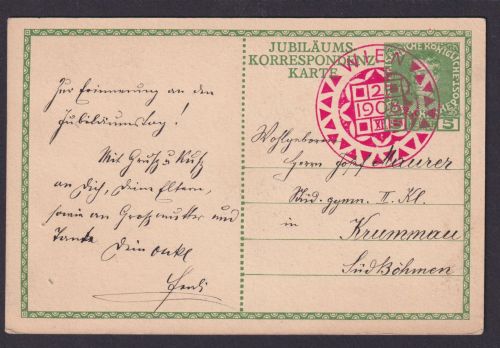 JUBILÄUMS
KORRESPONDENZ
KARTE
WIEN
2
1908
XII
5
Zur Erinnerung an den
Jubiläumstag!
Mit Gruß u. Kuß
an Dich, Deine Eltern,
sowie an Großmutter und
Tante
Dein Onkel
Ferdi
Wohlgeboren
Herrn Josef Maurer
Stud. gymn. II. Kl.
in
Krummau
Südböhmen